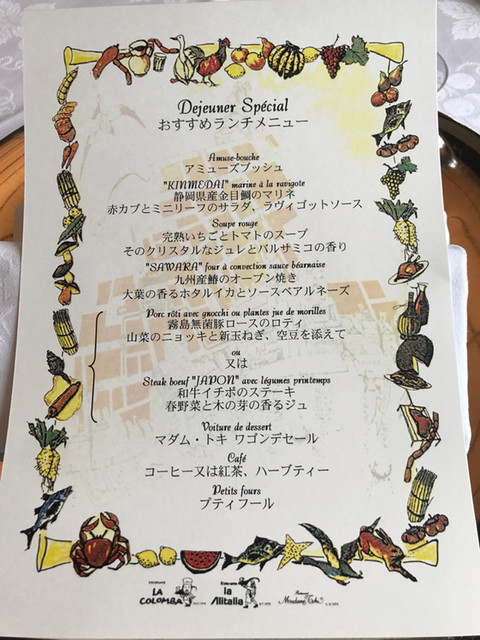 Dejeuner Spécial
おすすめランチメニュー
Amuse-bouche
アミューズブッシュ
"KINMEDAI" marine à la ravigote
静岡県産金目鯛のマリネ
赤カブとミニリーフのサラダ、ラヴィゴットソース
Soupe rouge
完熟いちごとトマトのスープ
そのクリスタルなジュレとバルサミコの香り
"SAWARA" four à convection sauce béarnaise
九州産鰆のオーブン焼き
大葉の香るホタルイカとソースベアルネーズ
Porc rôti avec gnocchi ou plantes jue de morilles
霧島無菌豚ロースのロティ
山菜のニョッキと新玉ねぎ、空豆を添えて
ou
又は
Steak boeuf "JAPON" avec légumes printemps
和牛イチボのステーキ
春野菜と木の芽の香るジュ
Voiture de dessert
マダム・トキ ワゴンデセール
Café
コーヒー又は紅茶、ハーブティー
Petits fours
プティフール
LA COLOMBA
la Alitalia
Madame Toki